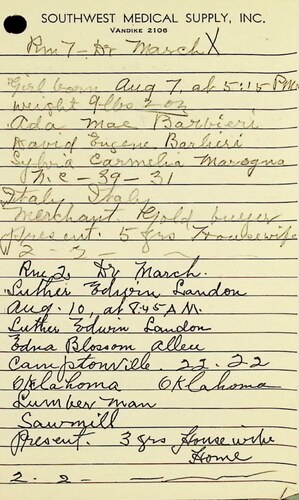 SOUTHWEST MEDICAL SUPPLY, INC.
VANDIKE 2106
Rm 7 - Dr March X
Girl born Aug 7, at 5:15 P.M.
weight 9 lbs 2 oz
Ada Mae Barbieri
David Eugene Barbieri
Sylvia Carmelia Maragna
N.C - 39 - 31
Italy Italy
Merchant Gold buyer
present. 5 yrs Housewife
2 - 3 - -
Rm 2. Dr March.
Luther Edwin Landon
Aug. 10, at 8:45 A.M.
Luther Edwin Landon
Edna Blossom Allen
Camptonville. 22. 22
Oklahoma Oklahoma
Lumber man
Sawmill
Present. 3 yrs House wife
Home
2. 2. -